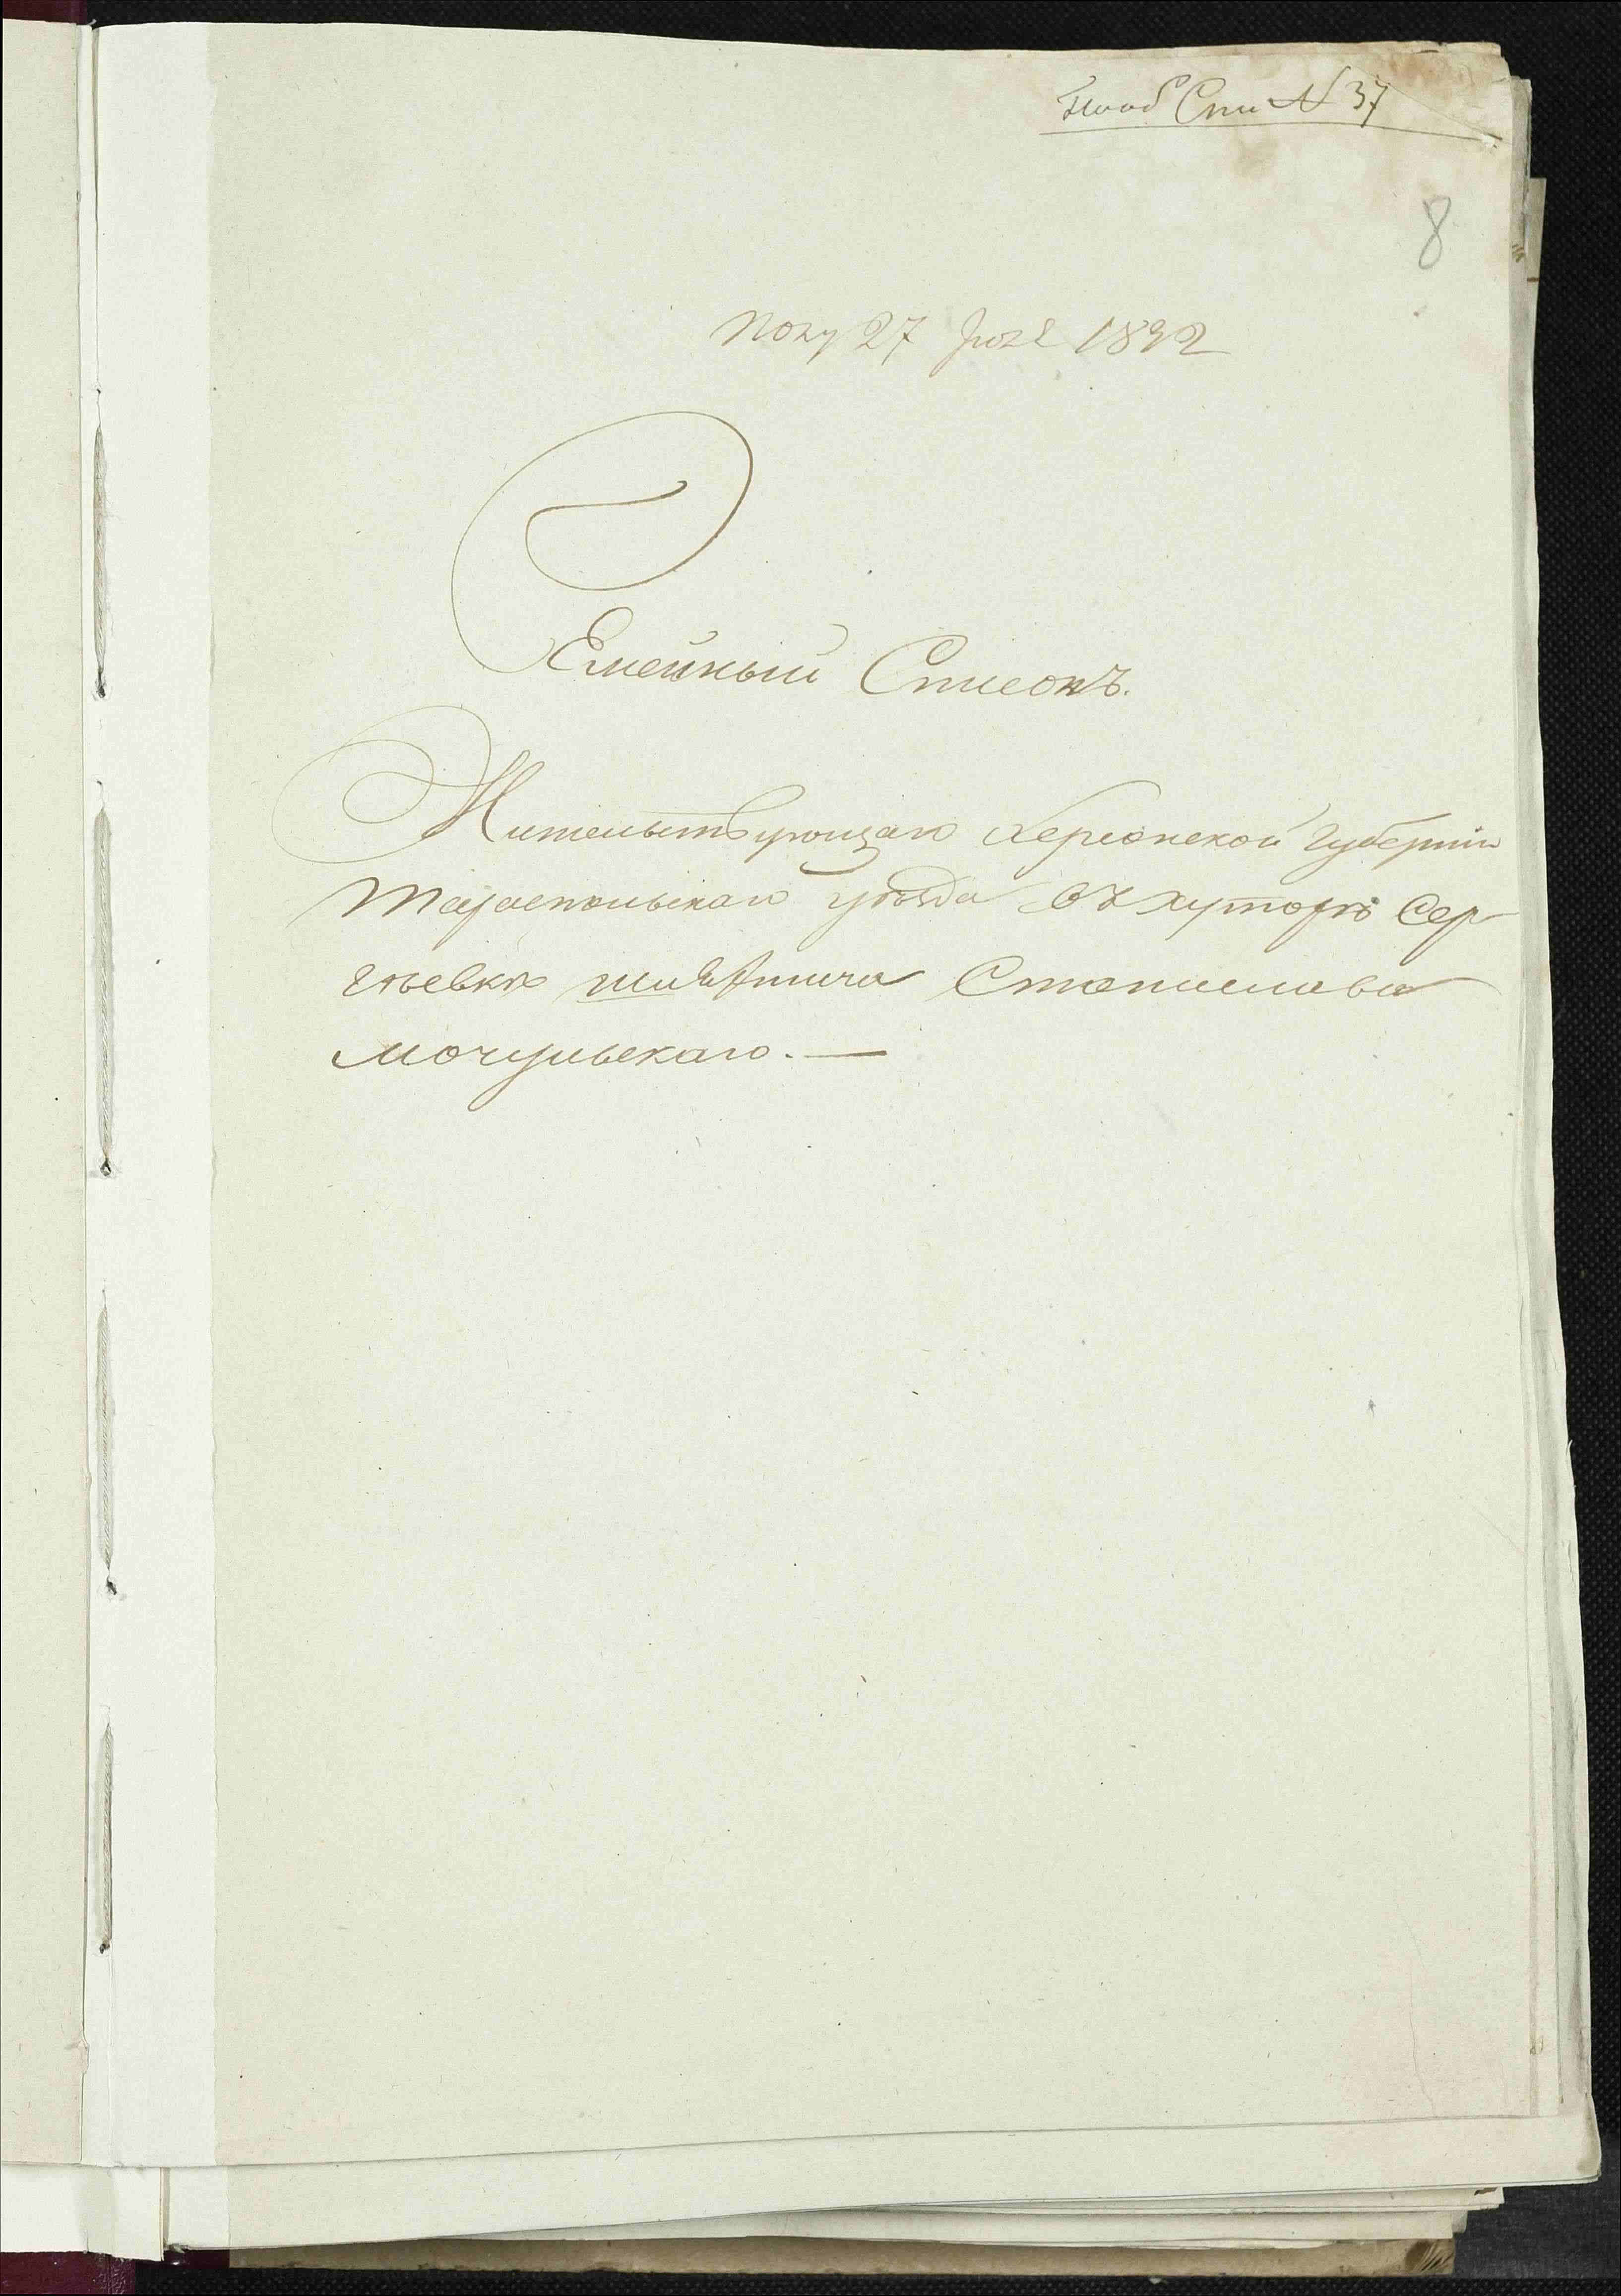 Спи N 37
8
Полу 27 1892
Семейный Списокъ.
Жительствующаго Херсонской Губерніи
Тираспольскаго уѣзда въ хуторѣ Сер
гѣевкѣ шляхтича Станислава
Мочульскаго. —